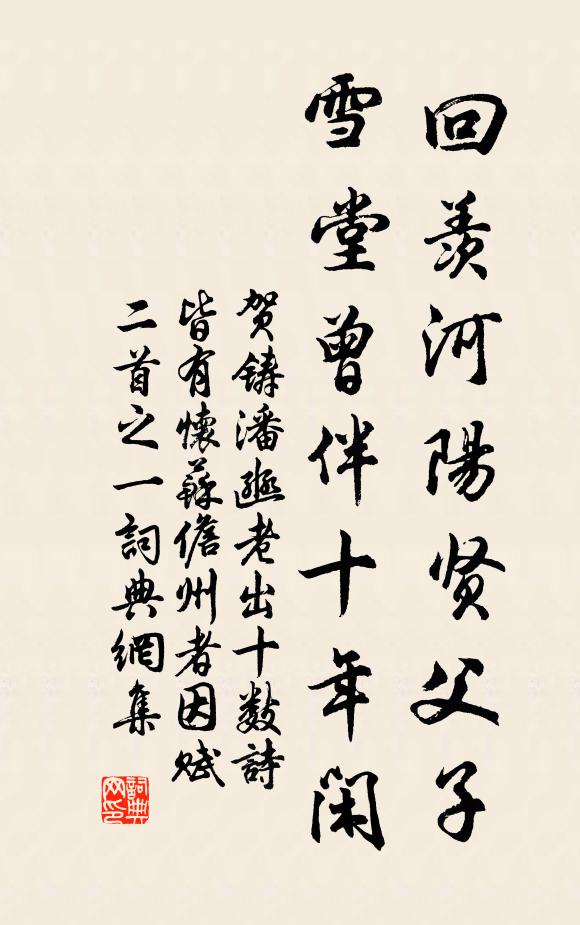 回羨河陽贤父子
雪堂曾伴十年闲
贺鑄潘邠老出十数詩
皆有懷蘇儋州者因赋
二首之一詞典網集
詞典
网印